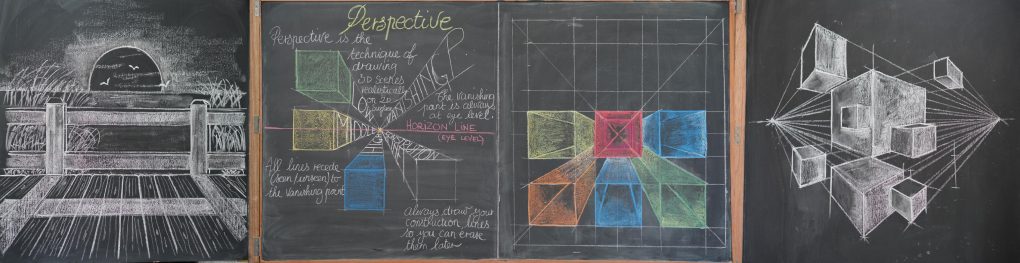 Perspective
Perspective is the
technique of
drawing
3D scenes
realistically
on 2D
VANISHING P
The vanishing
point is always
at eye level.
MIDDLE
HORIZON LINE
(EYE LEVEL)
All lines recede
(seen/unseen) to
the vanishing point
Always draw your
construction lines
so you can erase
them later